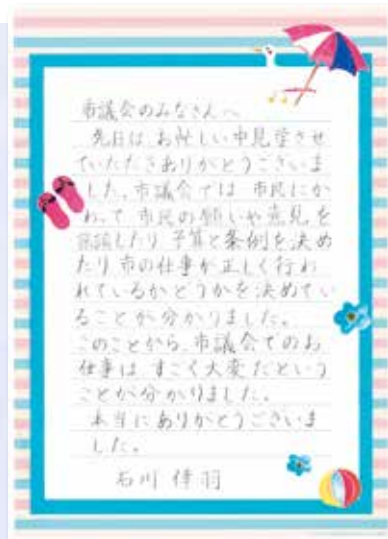 市議会のみなさんへ
先日は、お忙しい中見学させ
ていただきありがとうございま
した。市議会では 市民にか
わって 市民の願いや意見を
したり 予算と条例を決め
たり市の仕事が正しく行わ
れているかどうかを決めてい
ることが分かりました。
このことから、市議会でのお
仕事は すごく大変だという
ことが分かりました。
本当にありがとうございま
した。
石川 羽